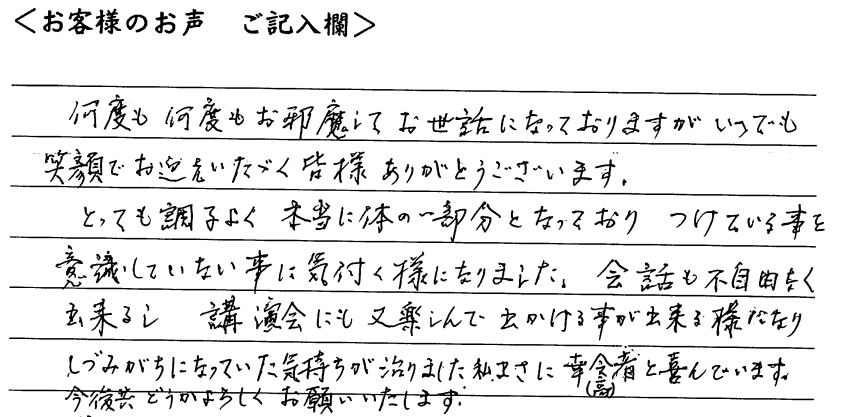 <お客様のお声　ご記入欄>
何度も何度もお邪魔してお世話になっておりますがいつでも
笑顔でお迎えいただく皆様ありがとうございます。
とっても調子よく 本当に体の一部分となっており つけている事を
意識していない事に気付く様になりました。会話も不自由なく
出来るし 講演会にも又楽しんで出かける事が出来る様になり
しづみがちになっていた気持ちが治りました私まさに幸令者と喜んでいます。
(高)
今後共どうかよろしくお願いいたします。